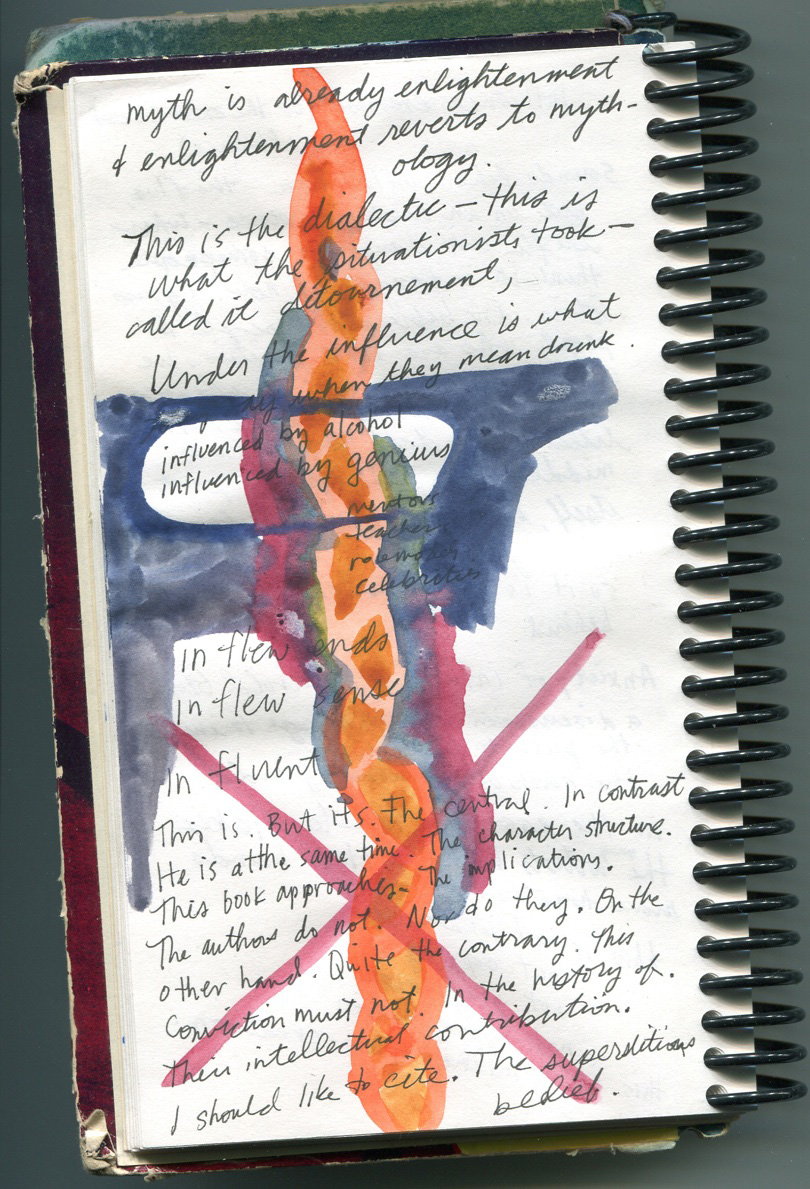 myth is already enlightenment
& enlightenment reverts to myth-
ology.
This is the dialectic – this is
what the situationists took –
called it détournement, –
Under the influence is what
they say when they mean drunk.
influenced by alcohol
influenced by genius
mentors
teachers
rolemodels
celebrities
in flew ends
in flew sense
In fluent
This is. But it's. The central. In contrast
He is at the same time. The character structure.
This book approaches – The implications.
The authors do not. Nor do they. On the
other hand. Quite the contrary. This
Conviction must not. In the history of.
Their intellectual contribution.
I should like to cite. The superstitious
belief.